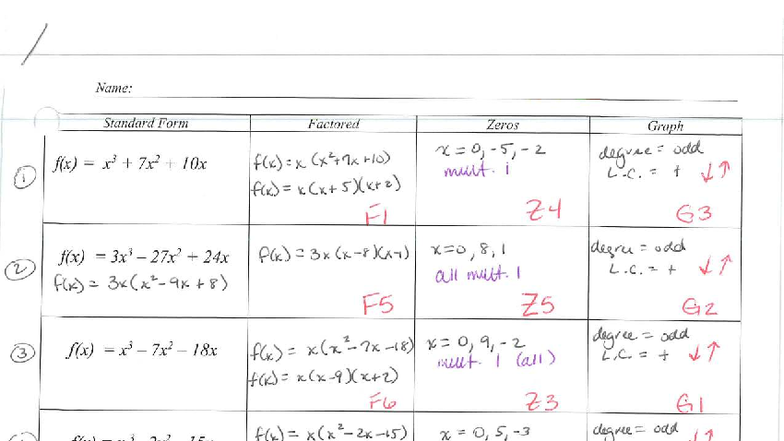 Name:
Standard Form Factored Zeros Graph
① f(x) = x³ + 7x² + 10x
f(x) = x (x² + 7x + 10)
f(x) = x (x + 5)(x + 2)
F1
x = 0, -5, -2
mult. 1
Z4
degree = odd
L.C. = + ↓↑
G3
② f(x) = 3x³ – 27x² + 24x
f(x) = 3x (x² - 9x + 8)
f(x) = 3x (x - 8)(x - 1)
F5
x = 0, 8, 1
all mult. 1
Z5
degree = odd
L.C. = + ↓↑
G2
③ f(x) = x³ – 7x² – 18x
f(x) = x (x² - 7x - 18)
f(x) = x (x - 9)(x + 2)
F6
x = 0, 9, -2
mult. 1 (all)
Z3
degree = odd
L.C. = + ↓↑
G1
f(x) = x (x² - 2x - 15)
x = 0, 5, -3
degree = odd